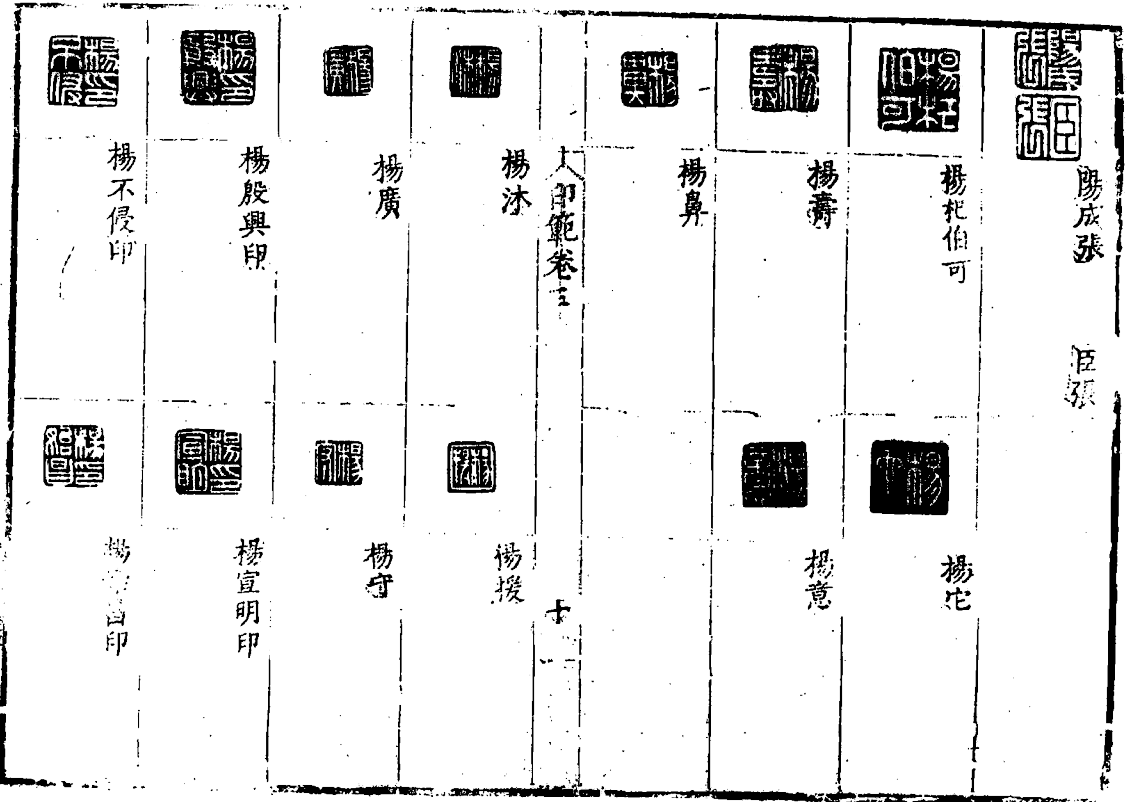 陽成張
臣張
楊杞伯可
楊它
楊壽
楊意
楊鼻
印範卷三
十
楊沐
楊援
楊廣
楊守
楊殷興印
楊宣明印
楊不侵印
楊
昌印